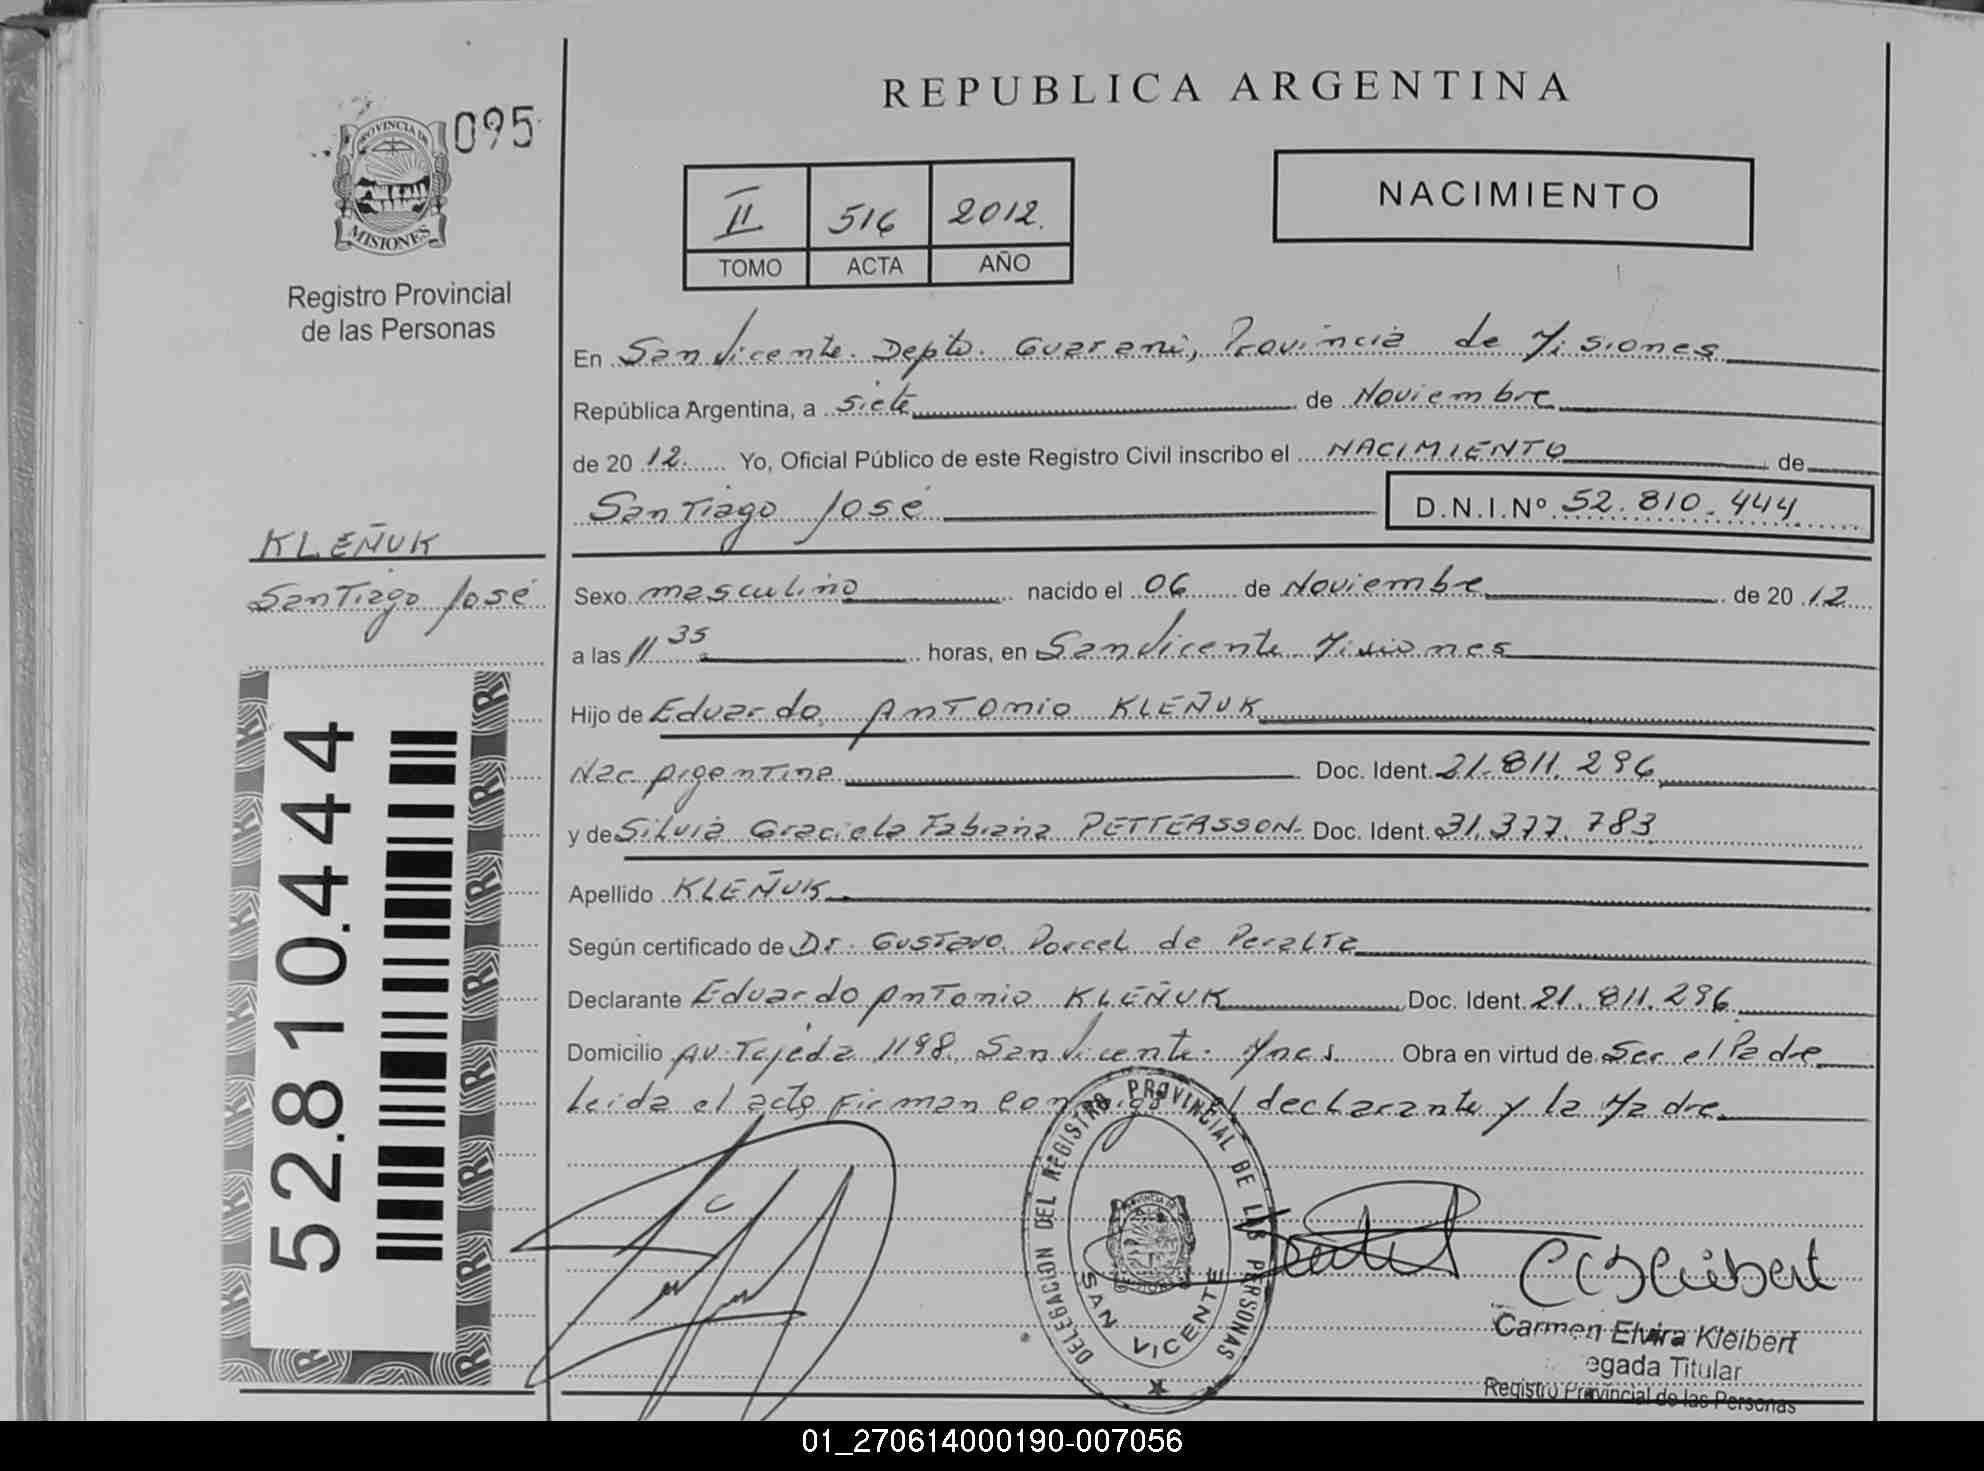 REPUBLICA ARGENTINA
095
PROVINCIA DE
MISIONES
Registro Provincial
de las Personas
II 516 2012.
TOMO ACTA AÑO
NACIMIENTO
En San Vicente. Depto. Guarani, Provincia de Misiones
República Argentina, a siete de Noviembre
de 20 12. Yo, Oficial Público de este Registro Civil inscribo el NACIMIENTO de
Santiago José
D.N.I.Nº 52.810.444
KLEÑUK
Santiago José
Sexo masculino nacido el 06 de Noviembre de 20 12
a las 11 35 horas, en San Vicente Misiones
Hijo de Eduardo Antonio KLEÑUK
Nac Argentina Doc. Ident. 21.811.296
y de Silvia Graciela Fabiana PETTERSSON- Doc. Ident. 31.377.783
Apellido KLEÑUK
Según certificado de Dr. Gustavo Porcel de Peralta
Declarante Eduardo Antonio KLEÑUK Doc. Ident. 21.811.296
Domicilio Av. Tejeda 1198 San Vicente. Mnes. Obra en virtud de Ser el Padre
Leida el acta Firman conmigo el declarante y la Madre
52.810.444
DELEGACION DEL REGISTRO PROVINCIAL DE LAS PERSONAS
SAN VICENTE
Carmen Elvira Kleibert
egada Titular
Registro Provincial de las Personas
01_270614000190-007056